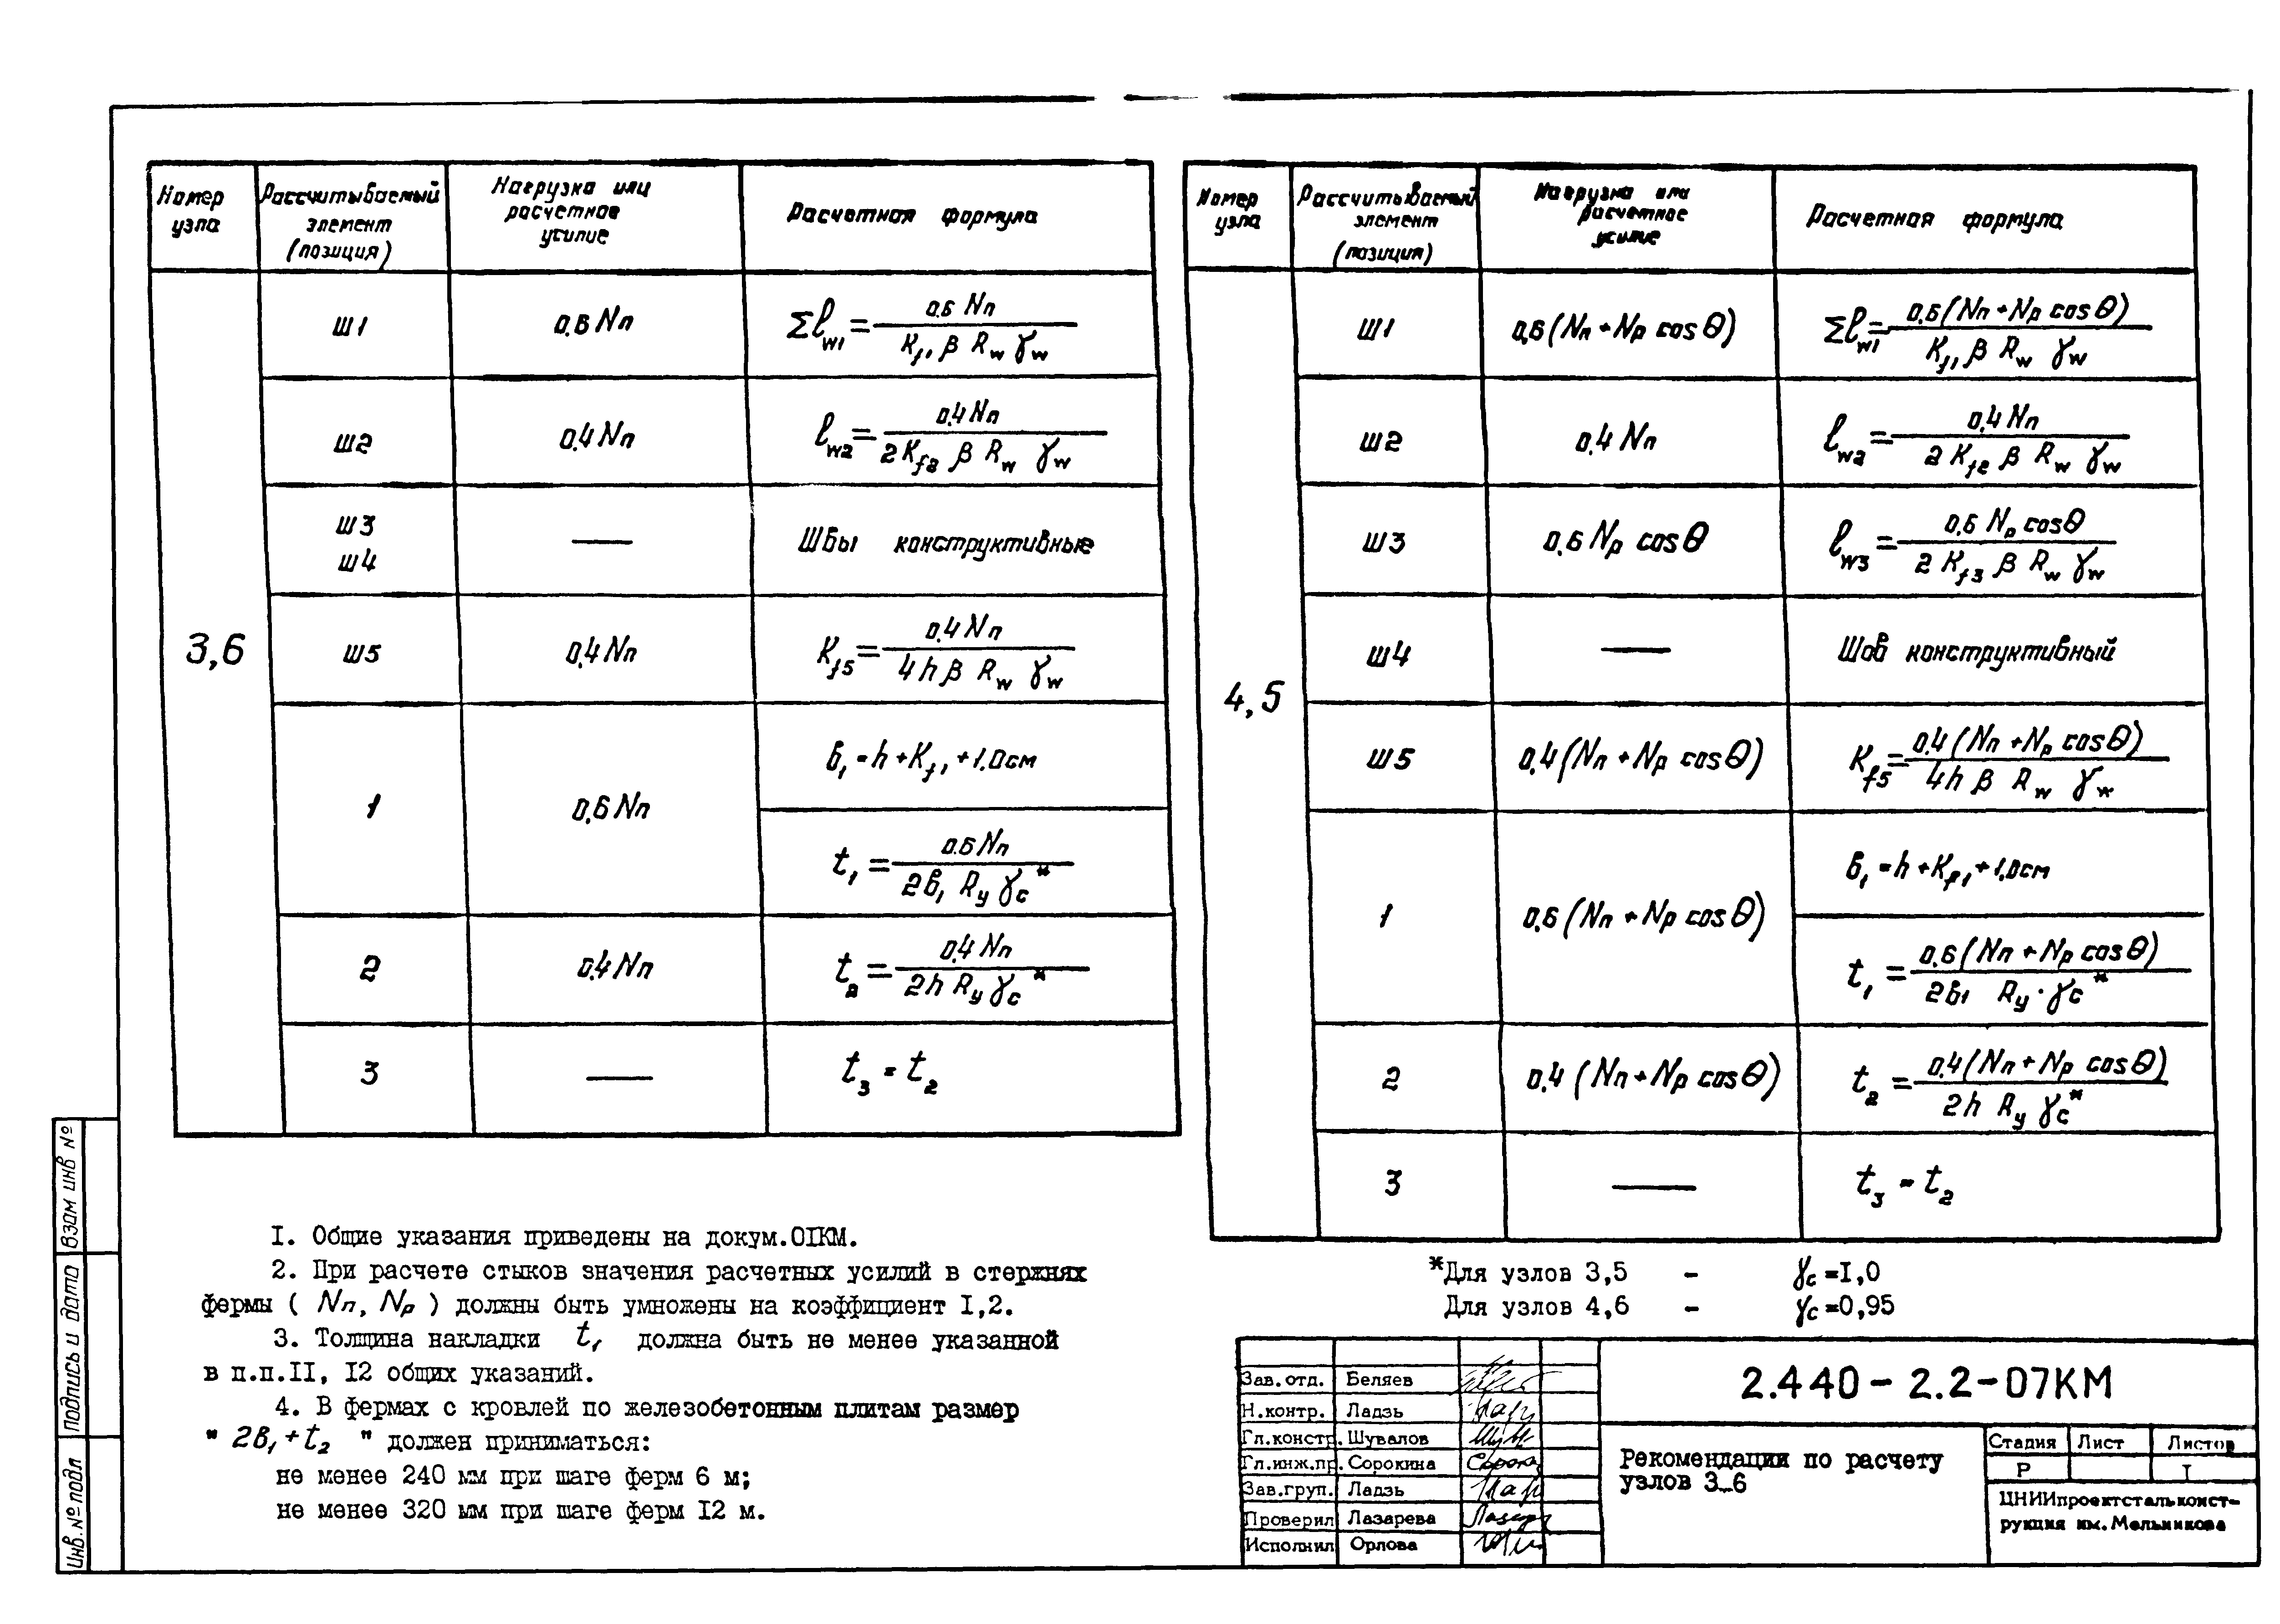 Номер узла | Рассчитываемый элемент (позиция) | Нагрузка или расчетное усилие | Расчетная формула
3,6
ш1 | 0,6 Nп | Σℓw1 = 0,6 Nп / (Kf1 β Rw γw)
ш2 | 0,4 Nп | ℓw2 = 0,4 Nп / (2 Kf2 β Rw γw)
ш3 ш4 | — | Швы конструктивные
ш5 | 0,4 Nп | Kf5 = 0,4 Nп / (4 h β Rw γw)
1 | 0,6 Nп | в1 = h + Kf1 + 1,0 см
t1 = 0,6 Nп / (2в1 Ry γc*)
2 | 0,4 Nп | t2 = 0,4 Nп / (2h Ry γc*)
3 | — | t3 = t2
Номер узла | Рассчитываемый элемент (позиция) | Нагрузка или расчетное усилие | Расчетная формула
4,5
ш1 | 0,6 (Nп + Nр cos θ) | Σℓw1 = 0,6 (Nп + Nр cos θ) / (Kf1 β Rw γw)
ш2 | 0,4 Nп | ℓw2 = 0,4 Nп / (2 Kf2 β Rw γw)
ш3 | 0,6 Nр cos θ | ℓw3 = 0,6 Nр cos θ / (2 Kf3 β Rw γw)
ш4 | — | Шов конструктивный
ш5 | 0,4 (Nп + Nр cos θ) | Kf5 = 0,4 (Nп + Nр cos θ) / (4h β Rw γw)
1 | 0,6 (Nп + Nр cos θ) | в1 = h + Kf1 + 1,0 см
t1 = 0,6 (Nп + Nр cos θ) / (2в1 Ry · γc*)
2 | 0,4 (Nп + Nр cos θ) | t2 = 0,4 (Nп + Nр cos θ) / (2h Ry γc*)
3 | — | t3 = t2
I. Общие указания приведены на докум.0IКМ.
2. При расчете стыков значения расчетных усилий в стержнях
фермы ( Nп, Nр ) должны быть умножены на коэффициент I,2.
3. Толщина накладки t1 должна быть не менее указанной
в п.п.II, I2 общих указаний.
4. В фермах с кровлей по железобетонным плитам размер
" 2в1 + t2 " должен приниматься:
не менее 240 мм при шаге ферм 6 м;
не менее 320 мм при шаге ферм I2 м.
*Для узлов 3,5 - γc = I,0
Для узлов 4,6 - γc = 0,95
Зав.отд. Беляев
Н.контр. Ладзь
Гл.констр. Шувалов
Гл.инж.пр. Сорокина
Зав.груп. Ладзь
Проверил Лазарева
Исполнил Орлова
2.440 - 2.2 - 07КМ
Рекомендации по расчету
узлов 3_6
Стадия Лист Листов
Р I
ЦНИИпроектстальконст-
рукция им. Мельникова
Взам инв №
Подпись и дата
Инв. № подл